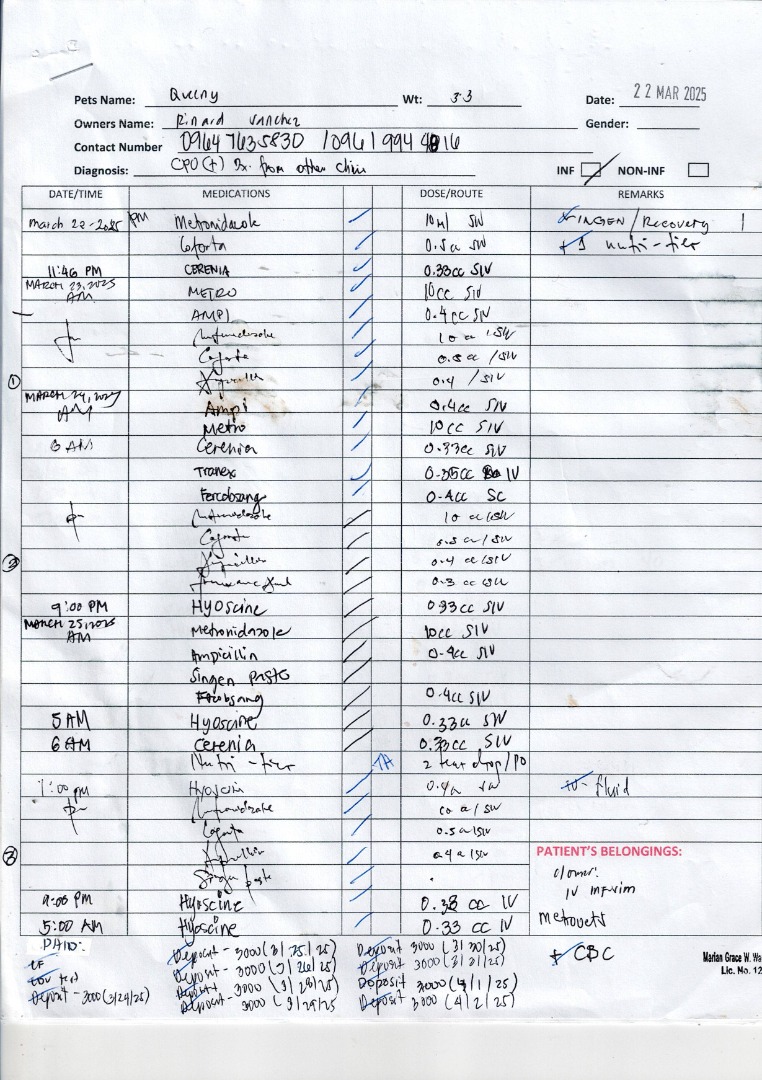 Pets Name: Wt: 3.3 Date: 22 MAR 2025
Owners Name: Rinard Sanchez Gender:
Contact Number 09647635830 / 0961994 4816
Diagnosis: CPV (+) Dx. from other clinic INF NON-INF
DATE/TIME MEDICATIONS DOSE/ROUTE REMARKS
March 22-2025 PM Metronidazole 10ml SIV SINGEN/Recovery 1
Caforta 0.5cc SIV + 1 nutri-tier
11:46 PM CERENIA 0.33cc SIV
MARCH 23, 2025 AM METRO 10cc SIV
AMPI 0.4cc SIV
Metronidazole 10 cc /SIV
Caforta 0.5 cc /SIV
Ampicillin 0.4 /SIV
1
MARCH 24, 2025 AM Ampi 0.4cc SIV
Metro 10cc SIV
3 AM Cerenia 0.33cc SIV
Tranex 0.35cc IV
Fercobsang 0.4cc SC
Metronidazole 10 cc/SIV
Caforta 0.5 cc/SIV
2 Ampicillin 0.4 cc/SIV
0.3 cc SIV
9:00 PM Hyoscine 0.33cc SIV
MARCH 25, 2025 AM Metronidazole 10cc SIV
Ampicillin 0.4cc SIV
Singen paste
Fercobsang 0.4cc SIV
5 AM Hyoscine 0.33cc SIV
6 AM Cerenia 0.33cc SIV
Nutri-tier TA 2 tear drop/PO
1:00 pm Hyoscin 0.4cc SIV IV-fluid
Metronidazole 10 cc/SIV
Caforta 0.5 cc/SIV
3 Ampicillin 0.4 cc/SIV PATIENT'S BELONGINGS:
Singen paste owner:
9:00 PM Hyoscine 0.33 cc IV
5:00 AM Hyoscine 0.33 cc IV Metrovets
PAID: Deposit - 3000 (3/25/25) Deposit 3000 (3/30/25) + CBC
Deposit - 3000 (3/26/25) Deposit 3000 (3/31/25) Marian Grace W. Wa
Deposit 3000 (3/28/25) Deposit 3000 (4/1/25) Lic. No. 12
Deposit - 3000 (3/24/25) Deposit - 3000 (3/29/25) Deposit 3000 (4/2/25)